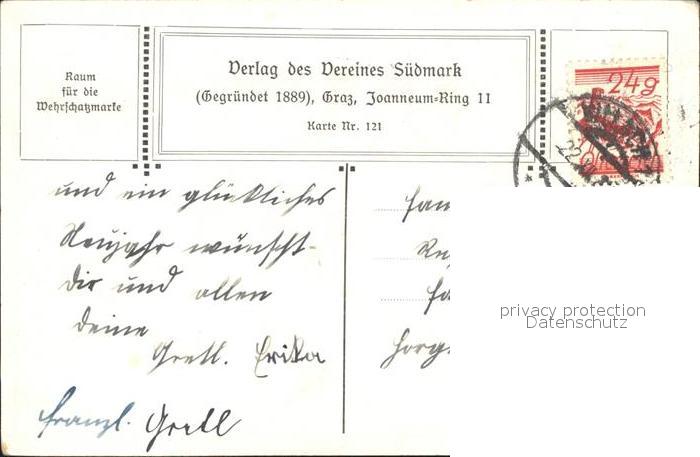 Raum
für die
Wehrschatzmarke
Verlag des Vereines Südmark
(Gegründet 1889), Graz, Joanneum-Ring 11
Karte Nr. 121
24g
und ein glückliches
Neujahr wünscht
Dir und allen
Deine
Gretl. Erika
Franzl. Gretl
privacy protection
Datenschutz